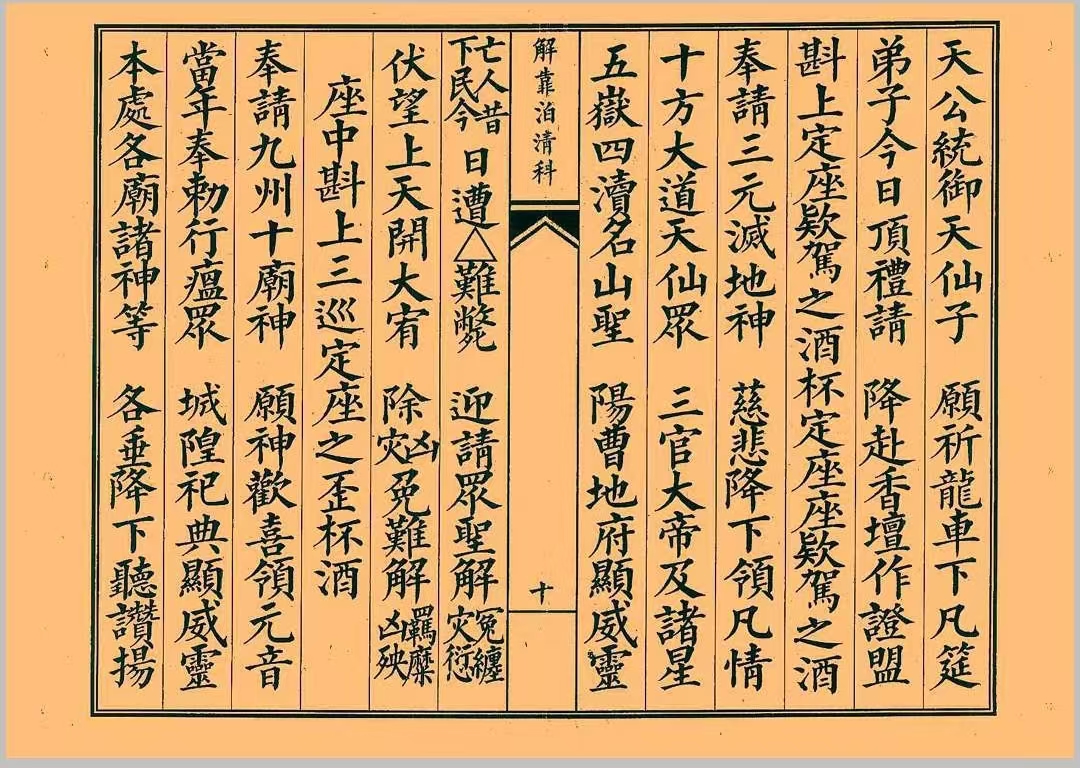 天公統御天仙子　願祈龍車下凡筵
弟子今日頂禮請　降赴香壇作證盟
斟上定座欵駕之酒杯定座座欵駕之酒
奉請三元滅地神　慈悲降下領凡情
十方大道天仙眾　三官大帝及諸星
五嶽四瀆名山聖　陽曹地府顯威靈
解靠泊清科
十
亡人昔下民今日遭△難斃　迎請眾聖解冤纏灾愆
伏望上天開大宥　除凶灾免難解羈縻凶殃
座中斟上三巡定座之歪杯酒
奉請九州十廟神　願神歡喜領元音
當年奉勅行瘟眾　城隍祀典顯威靈
本處各廟諸神等　各垂降下聽讚揚